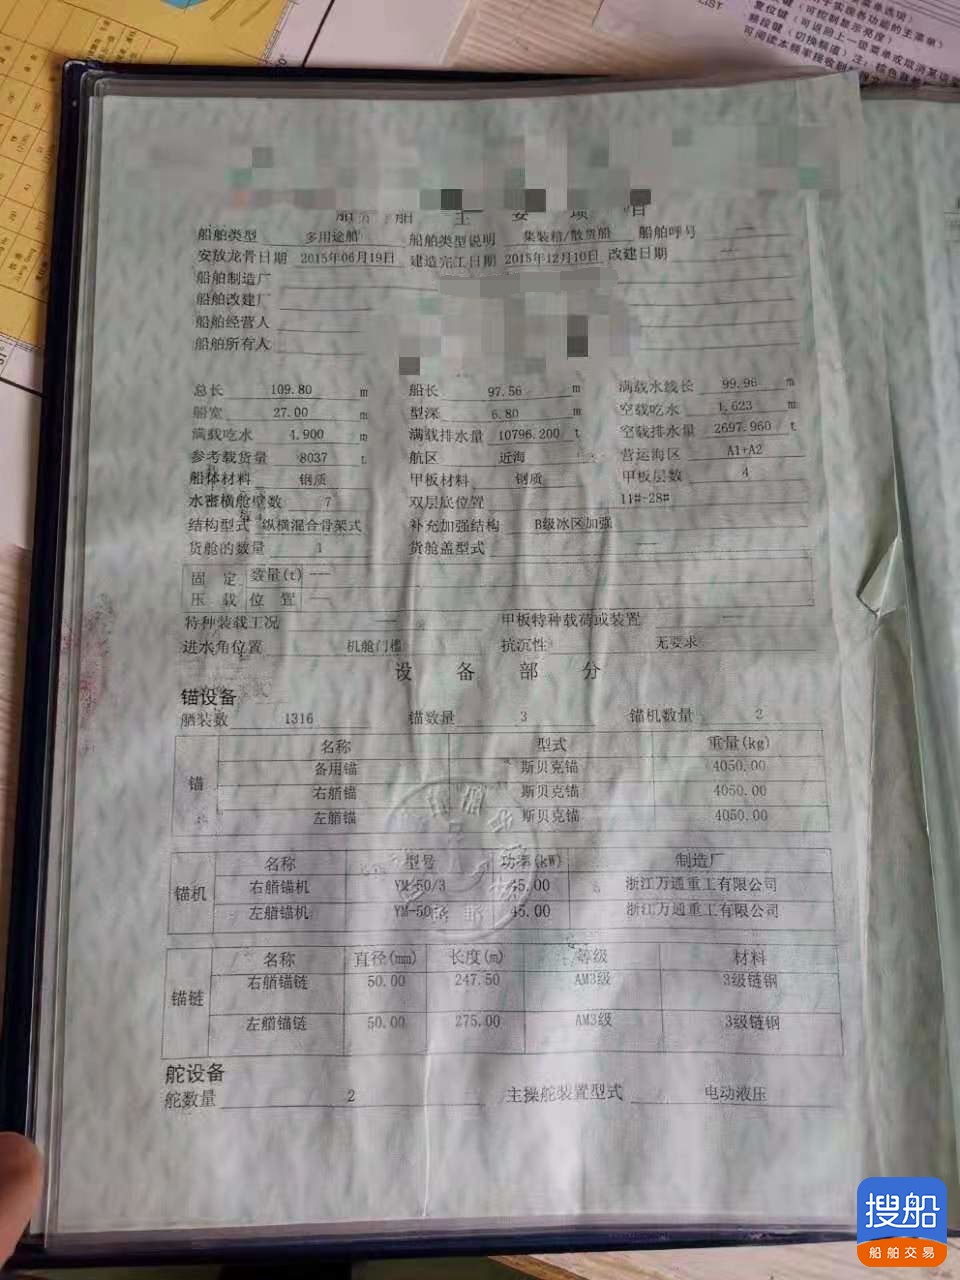 LIST
复位键（可控制显示亮度）
频段键（切换频道）注：棕色
船舶主要项目
船舶类型 多用途船 船舶类型说明 集装箱/散货船 船舶呼号 ——
安放龙骨日期 2015年06月19日 建造完工日期 2015年12月10日 改建日期 ——
船舶制造厂
船舶改建厂
船舶经营人
船舶所有人
总长 109.80 m 船长 97.56 m 满载水线长 99.96 m
船宽 27.00 m 型深 6.80 m 空载吃水 1.623 m
满载吃水 4.900 m 满载排水量 10796.200 t 空载排水量 2697.960 t
参考载货量 8037 t 航区 近海 营运海区 A1+A2
船体材料 钢质 甲板材料 钢质 甲板层数 4
水密横舱壁数 7 双层底位置 11#-28#
结构型式 纵横混合骨架式 补充加强结构 B级冰区加强
货舱的数量 1 货舱盖型式 ——
固定 数量(t) ——
压载 位置 ——
特种装载工况 —— 甲板特种载荷或装置 ——
进水角位置 机舱门槛 抗沉性 无要求
设备部分
锚设备
舾装数 1316 锚数量 3 锚机数量 2
锚 名称 型式 重量(kg)
备用锚 斯贝克锚 4050.00
右艏锚 斯贝克锚 4050.00
左艏锚 斯贝克锚 4050.00
锚机 名称 型号 功率(kW) 制造厂
右艏锚机 YM-50/3 45.00 浙江万通重工有限公司
左艏锚机 YM-50 45.00 浙江万通重工有限公司
锚链 名称 直径(mm) 长度(m) 等级 材料
右艏锚链 50.00 247.50 AM3级 3级链钢
左艏锚链 50.00 275.00 AM3级 3级链钢
舵设备
舵数量 2 主操舵装置型式 电动液压
搜船
船舶交易